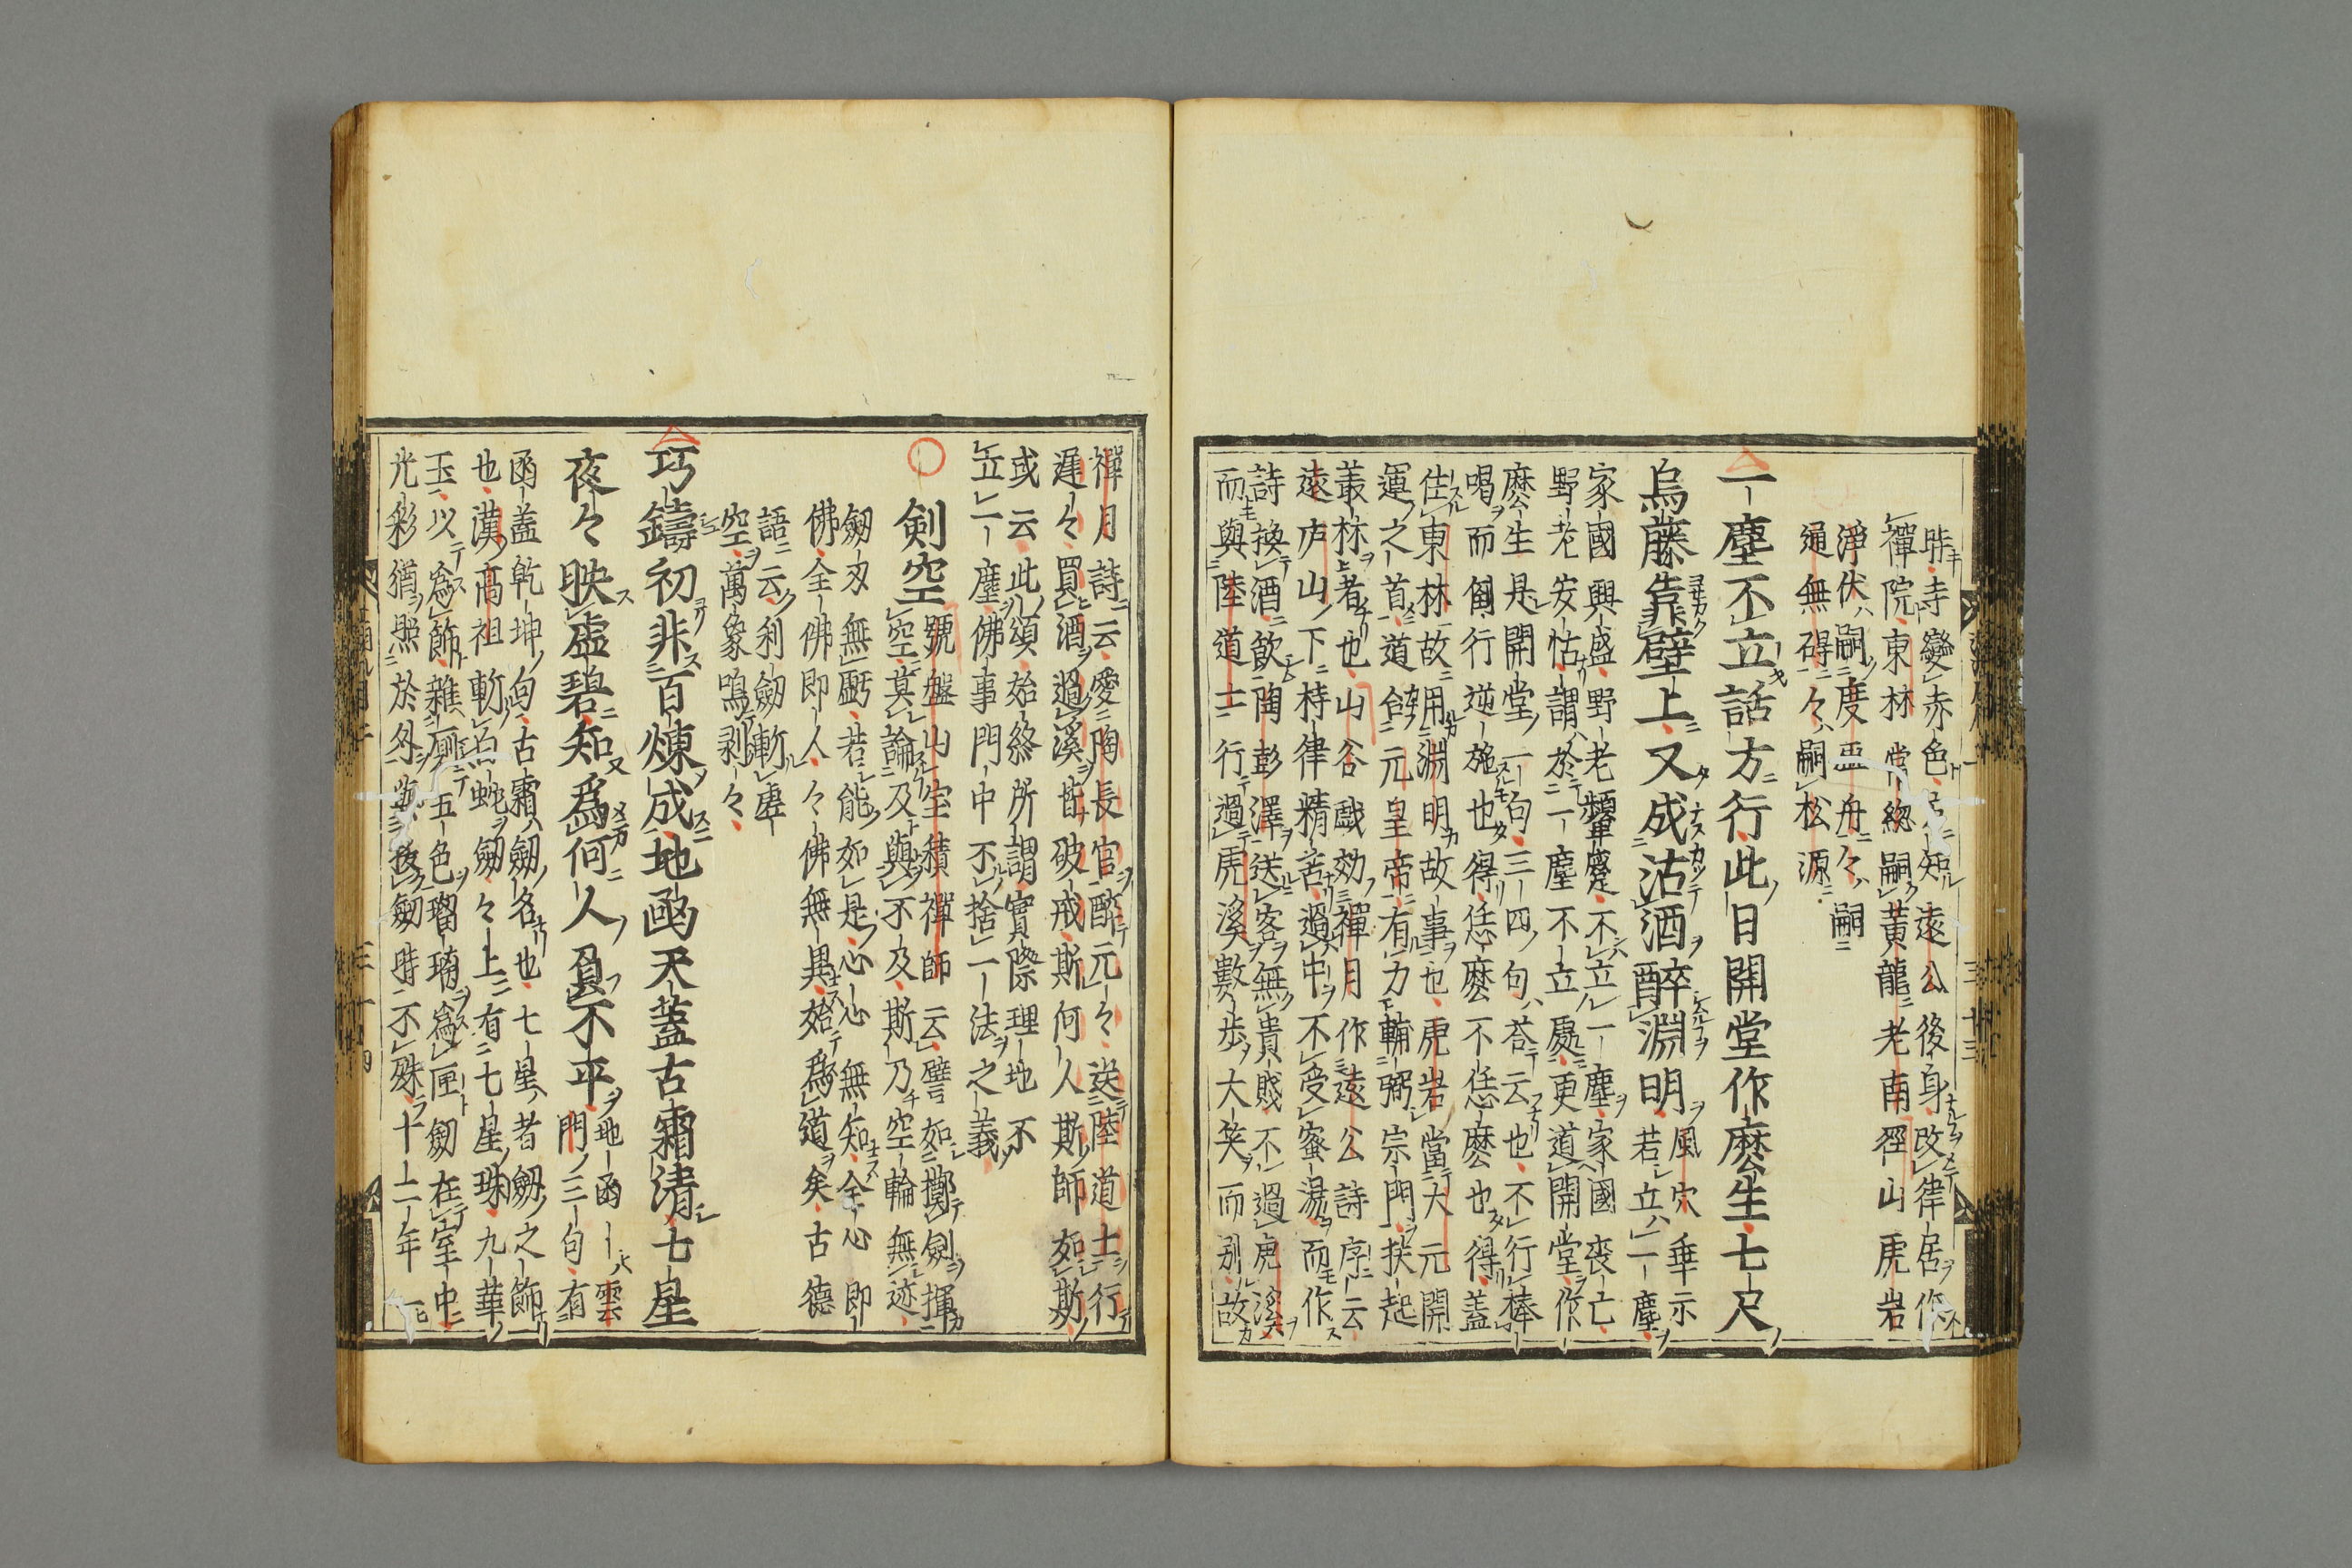 時寺變赤色知遠公後身改律居作
禪院東林常總嗣黃龍老南徑山虎岩
淨伏嗣虛舟々嗣
通無碍々嗣松源
一塵不立話方行此日開堂作麽生七尺
烏藤靠壁上又成沽酒醉淵明風穴垂示
若立一塵
家國興盛野老顰蹙不立一塵家國喪亡
野老安怗謂於一塵不立處更道開堂作
麽生是開堂一句三四句答云也不行棒
喝而倒行逆施也得恁麽不恁麽也得蓋
住東林故用淵明故事也虎岩當大元開
運之首道合元皇帝有力輔弼宗門扶起
叢林者也山谷戲効禪月作遠公詩序云
遠庐山下持律精苦過中不受蜜湯而作
詩換酒飲陶彭澤送客無貴賤不過虎溪
而與陸道士行過虎溪數步大笑而別故
禪月詩云愛陶長官醉元々送陸道士行
遲々買酒過溪皆破戒斯何人斯師如斯
或云此頌始終所謂實際理地不
立一塵佛事門中不捨一法之義
剣空號盤山宝積禪師云譬如擲劍揮
空莫論及與不及斯乃空輪無迹
劔刃無虧若能如是心心無知全心即
佛全佛即人々佛無異始爲道矣古德
語云利劔斬虛
空萬象鳴剥々
巧鑄初非百煉成地凾天蓋古霜清七星
夜々映虛碧知爲何人負不平地凾雲
門三句有
凾蓋乾坤句古霜劔名也七星者劔之飾
也漢高祖斬白蛇劔々上有七星珠九華
玉以爲飾雜厠五色瑠璃爲匣劔在室中
光彩猶照於外與挺劔時不殊十二年一